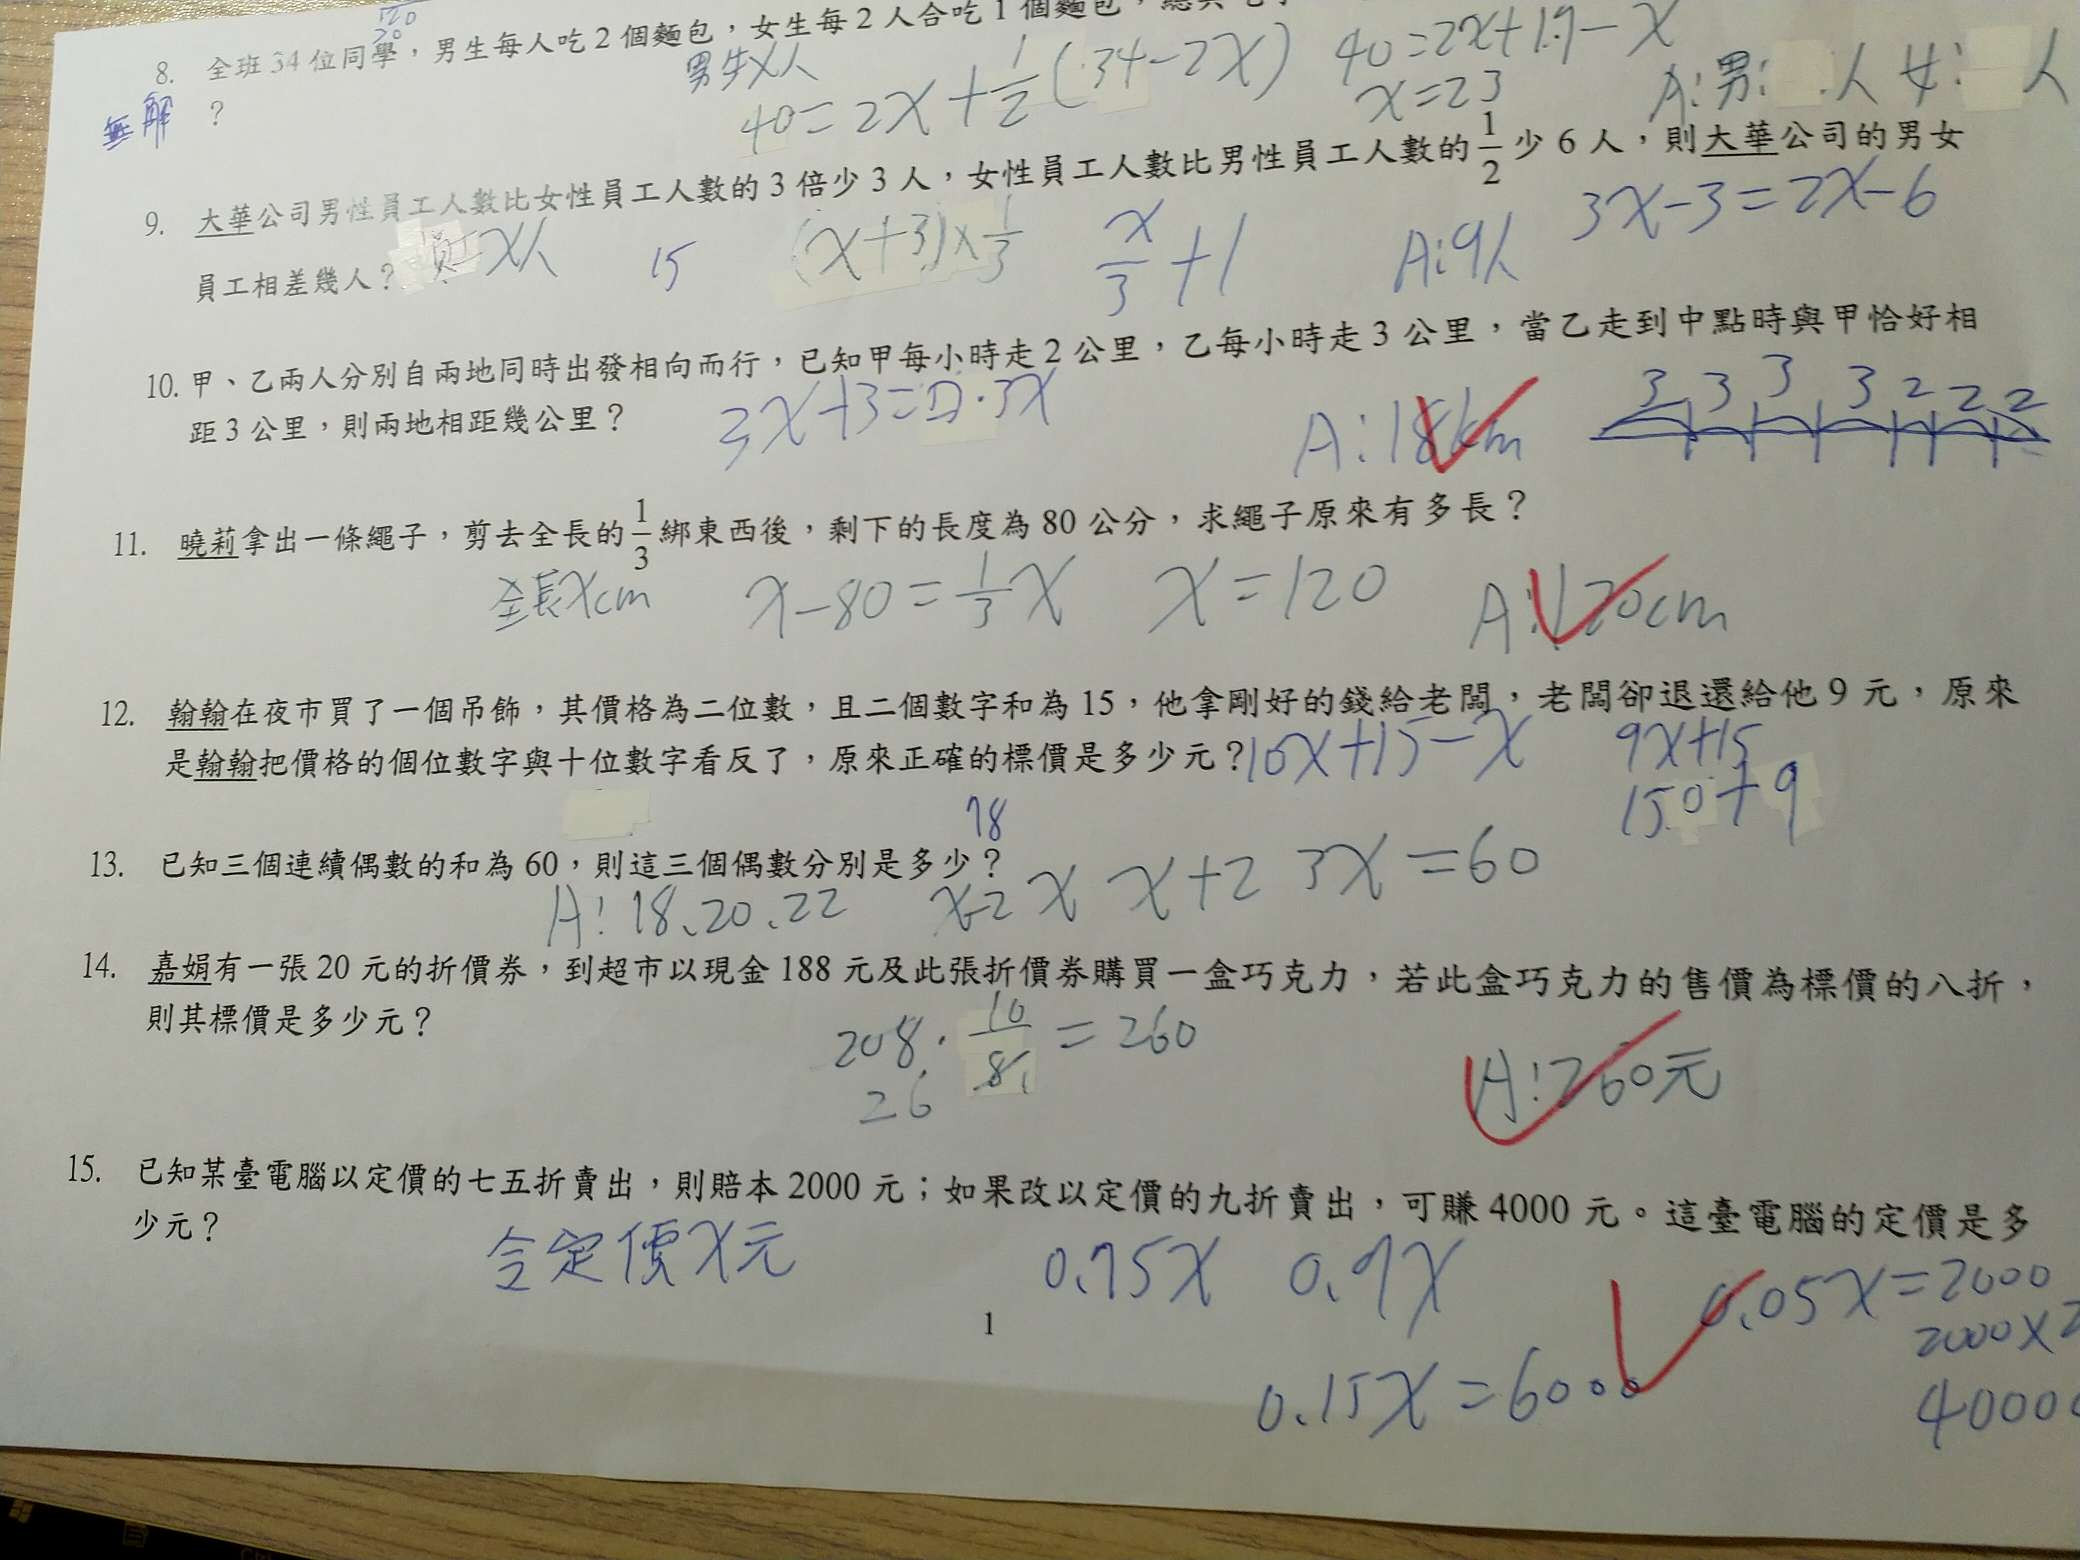 120
20
8. 全班34位同學，男生每人吃2個麵包，女生每2人合吃1個麵包，
?
無解
男生X人
40=2X+1/2(34-2X)
40=2X+17-X
X=23
A:男: 人 女: 人
9. 大華公司男性員工人數比女性員工人數的3倍少3人，女性員工人數比男性員工人數的1/2少6人，則大華公司的男女
員工相差幾人？
X人
15
(X+3)×1/3
X/3+1
A:9人
3X-3=2X-6
10. 甲、乙兩人分別自兩地同時出發相向而行，已知甲每小時走2公里，乙每小時走3公里，當乙走到中點時與甲恰好相
距3公里，則兩地相距幾公里？
A:18km
3 3 3 3 2 2 2
11. 曉莉拿出一條繩子，剪去全長的1/3綁東西後，剩下的長度為80公分，求繩子原來有多長？
全長Xcm
X-80=1/3X
X=120
A:120cm
12. 翰翰在夜市買了一個吊飾，其價格為二位數，且二個數字和為15，他拿剛好的錢給老闆，老闆卻退還給他9元，原來
是翰翰把價格的個位數字與十位數字看反了，原來正確的標價是多少元？
10X+15-X
9X+15
150+9
18
13. 已知三個連續偶數的和為60，則這三個偶數分別是多少？
A:18、20、22
X-2 X X+2 3X=60
14. 嘉娟有一張20元的折價券，到超市以現金188元及此張折價券購買一盒巧克力，若此盒巧克力的售價為標價的八折，
則其標價是多少元？
208·10/8=260
26
A:260元
15. 已知某臺電腦以定價的七五折賣出，則賠本2000元；如果改以定價的九折賣出，可賺4000元。這臺電腦的定價是多
少元？
令定價X元
0.75X 0.9X
0.05X=2000
2000×2
0.15X=6000
4000
1